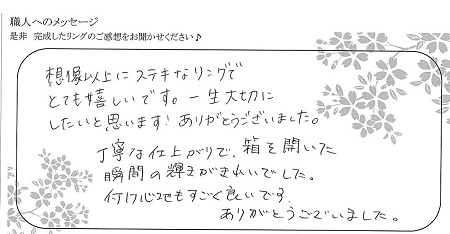 職人へのメッセージ
是非 完成したリングのご感想をお聞かせください♪
想像以上にステキなリングで
とても嬉しいです。一生大切に
したいと思います！ありがとうございました。
丁寧な仕上がりで、箱を開いた
瞬間の輝きがきれいでした。
付け心地もすごく良いです。
ありがとうございました。